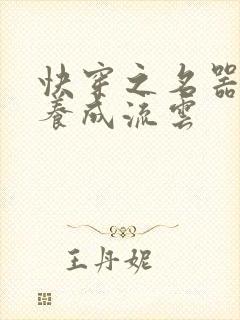 快穿之名器
養成流雲
王丹妮